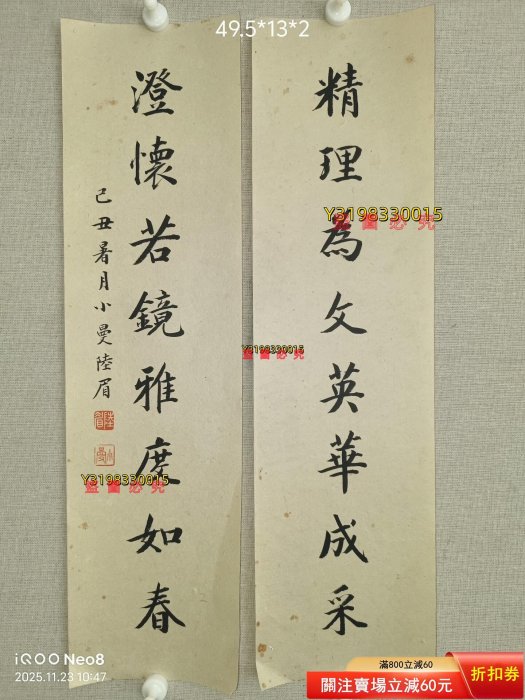 49.5*13*2
精理為文英華成采
澄懷若鏡雅度如春
己丑暑月小曼陸眉
Y3198330015
盜圖必究
Y3198330015
盜圖必究
Y3198330015
盜圖必究
iQOO Neo8
2025.11.23 10:47
滿800立減60
關注賣場立減60元
折扣券